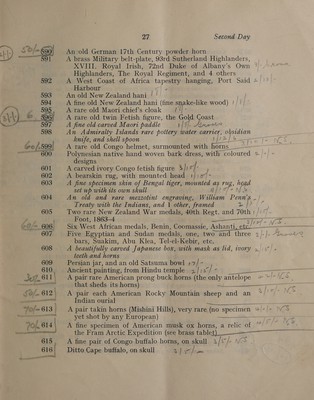 27
Second Day
50/- 590 An old German 17th Century powder horn
591 A brass Military belt-plate, 93rd Sutherland Highlanders,
XVIII. Royal Irish, 72nd Duke of Albany's Own
Highlanders, The Royal Regiment, and 4 others
592 A West Coast of Africa tapestry hanging, Port Said
Harbour
593 An old New Zealand hani
594 A fine old New Zealand hani (fine snake-like wood)
595 A rare old Maori chief's cloak
596 A rare old twin Fetish figure, the Gold Coast
597 A fine old carved Maori paddle
598 An Admiralty Islands rare pottery water carrier, obsidian
knife, and shell spoon
60/- 599 A rare old Congo helmet, surmounted with horns
600 Polynesian native hand woven bark dress, with coloured
designs
601 A carved ivory Congo fetish figure
602 A bearskin rug, with mounted head
603 A fine specimen skin of Bengal tiger, mounted as rug, head
set up with its own skull
604 An old and rare mezzotint engraving, William Penn's
Treaty with the Indians, and 3 other, framed
605 Two rare New Zealand War medals, 40th Regt. and 70th
Foot, 1863-4
60/- 606 Six West African medals, Benin, Coomassie, Ashanti, etc.
607 Five Egyptian and Sudan medals, one, two and three
bars, Snakim, Abu Klea, Tel-el-Kebir, etc.
608 A beautifully carved Japanese box, with mask as lid, ivory
teeth and horns
609 Persian jar, and an old Satsuma bowl
610 Ancient painting, from Hindu temple
611 A pair rare American prong buck horns (the only antelope
that sheds its horns)
50/- 612 A pair each American Rocky Mountain sheep and an
Indian ourial
70/- 613 A pair takin horns (Mishini Hills), very rare (no specimen
yet shot by any European)
70/- 614 A fine specimen of American musk ox horns, a relic of
the Fram Arctic Expedition (see brass tablet)
615 A fine pair of Congo buffalo horns, on skull
616 Ditto Cape buffalo, on skull